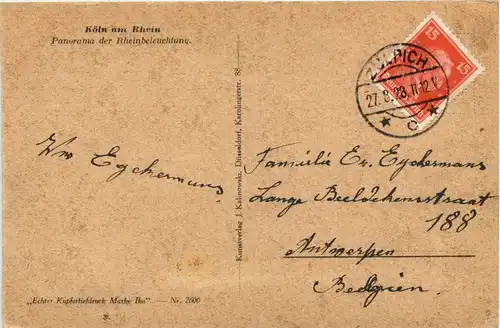 Köln am Rhein
Panorama der Rheinbeleuchtung.
Eyckermans
"Echter Kupfertiefdruck Marke Iho" — Nr. 2600
Kunstverlag J. Kalinowski, Düsseldorf, Karolingerstr. 88
15 15
ZÜLPICH
27.8.28.11-12 V.
* c *
Familie Ev. Eyckermans
Lange Beeldekensstraat
188
Antwerpen
Belgien.